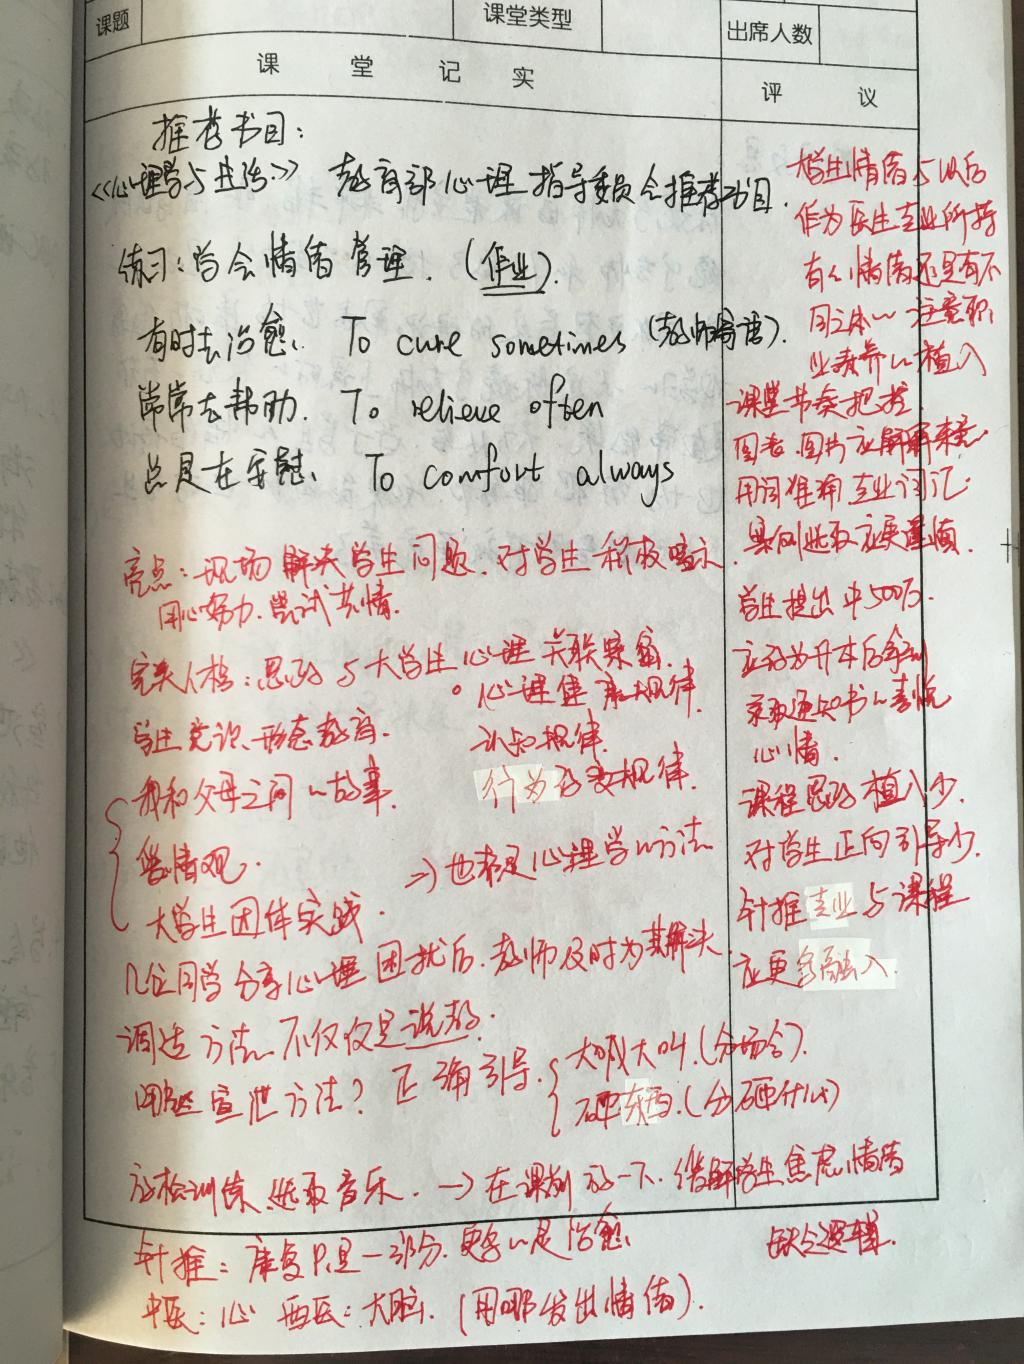 课题 课堂类型 出席人数
课堂记实 评议
推荐书目：
《心理学与生活》 教育部心理指导委员会推荐书目.
练习：学会情绪管理.（作业）.
有时去治愈、To cure sometimes（教师寄语）.
常常去帮助. To relieve often
总是在安慰、To comfort always
亮点：现场解决学生问题.对学生积极暗示
用心努力.尝试共情.
完美人格：思政与大学生心理关联紧密.
心理健康规律
学生意识、形态教育. 认知规律.
我和父母之间的故事. 行为改变规律.
爱情观. ⇒也就是心理学的方法
大学生团体实践.
几位同学分享心理困扰后.教师及时为其解决.
调适方法.不仅仅是说教.
哪些宣泄方法？正确引导.
大喊大叫.(分场合).
砸东西.(分砸什么)
放松训练、选取音乐.→在课前放一下.缓解学生焦虑情绪
针推：康复只是一部分.更多的是治愈、
中医：心 西医：大脑.（用哪发出情绪）.
大学生情绪与以后
作为医生专业所持
有的情绪还是有不
同之处的 注意职
业素养的植入
课堂节奏把控.
图表.图片应解释来意.
用词准确专业词汇.
案例选取应更谨慎.
学生提出中500万.
应改为升本后拿到
录取通知书的喜悦
心情.
课程思政植入少.
对学生正向引导少.
针推专业与课程
应更多融入.
缺乏逻辑.